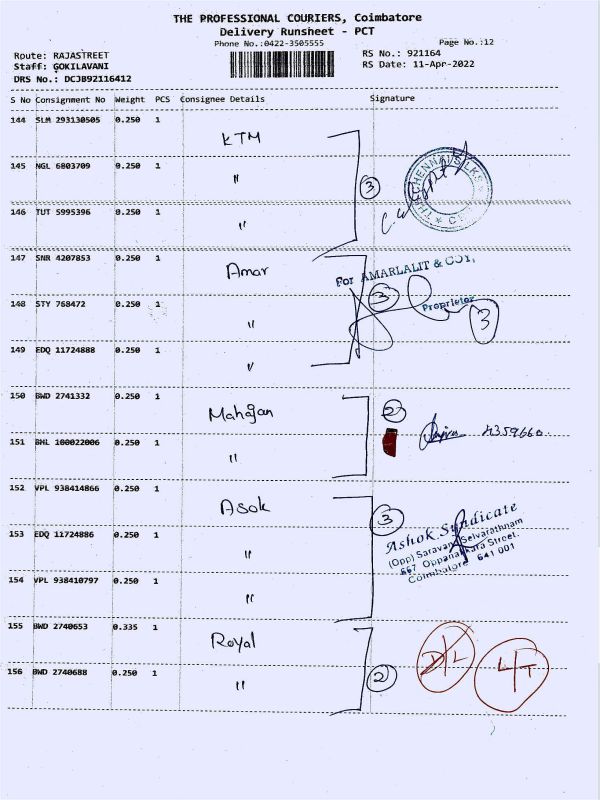 THE PROFESSIONAL COURIERS, Coimbatore
Delivery Runsheet - PCT
Phone No.:0422-3505555 Page No.:12
Route: RAJASTREET RS No.: 921164
Staff: GOKILAVANI RS Date: 11-Apr-2022
DRS No.: DCJB92116412
S No Consignment No Weight PCS Consignee Details Signature
144 SLM 293130505 0.250 1 KTM
145 NGL 6803709 0.250 1 "
3
THE CHENNAI SILKS
146 TUT 5995396 0.250 1 "
147 SNR 4207853 0.250 1 Amar
For AMARLALIT & COY,
148 STY 768472 0.250 1 "
3
Proprietor
3
149 EDQ 11724888 0.250 1 "
150 BWD 2741332 0.250 1 Mahajan 2
151 BHL 100022006 0.250 1 "
152 VPL 938414866 0.250 1 Asok
3
153 EDQ 11724886 0.250 1 "
Ashok Syndicate
(Opp) Saravana Selvarathnam
667 Oppanakara Street.
Coimbatore 641 001
154 VPL 938410797 0.250 1 "
155 BWD 2740653 0.335 1 Royal
D/L
L/T
156 BWD 2740688 0.250 1 " 2